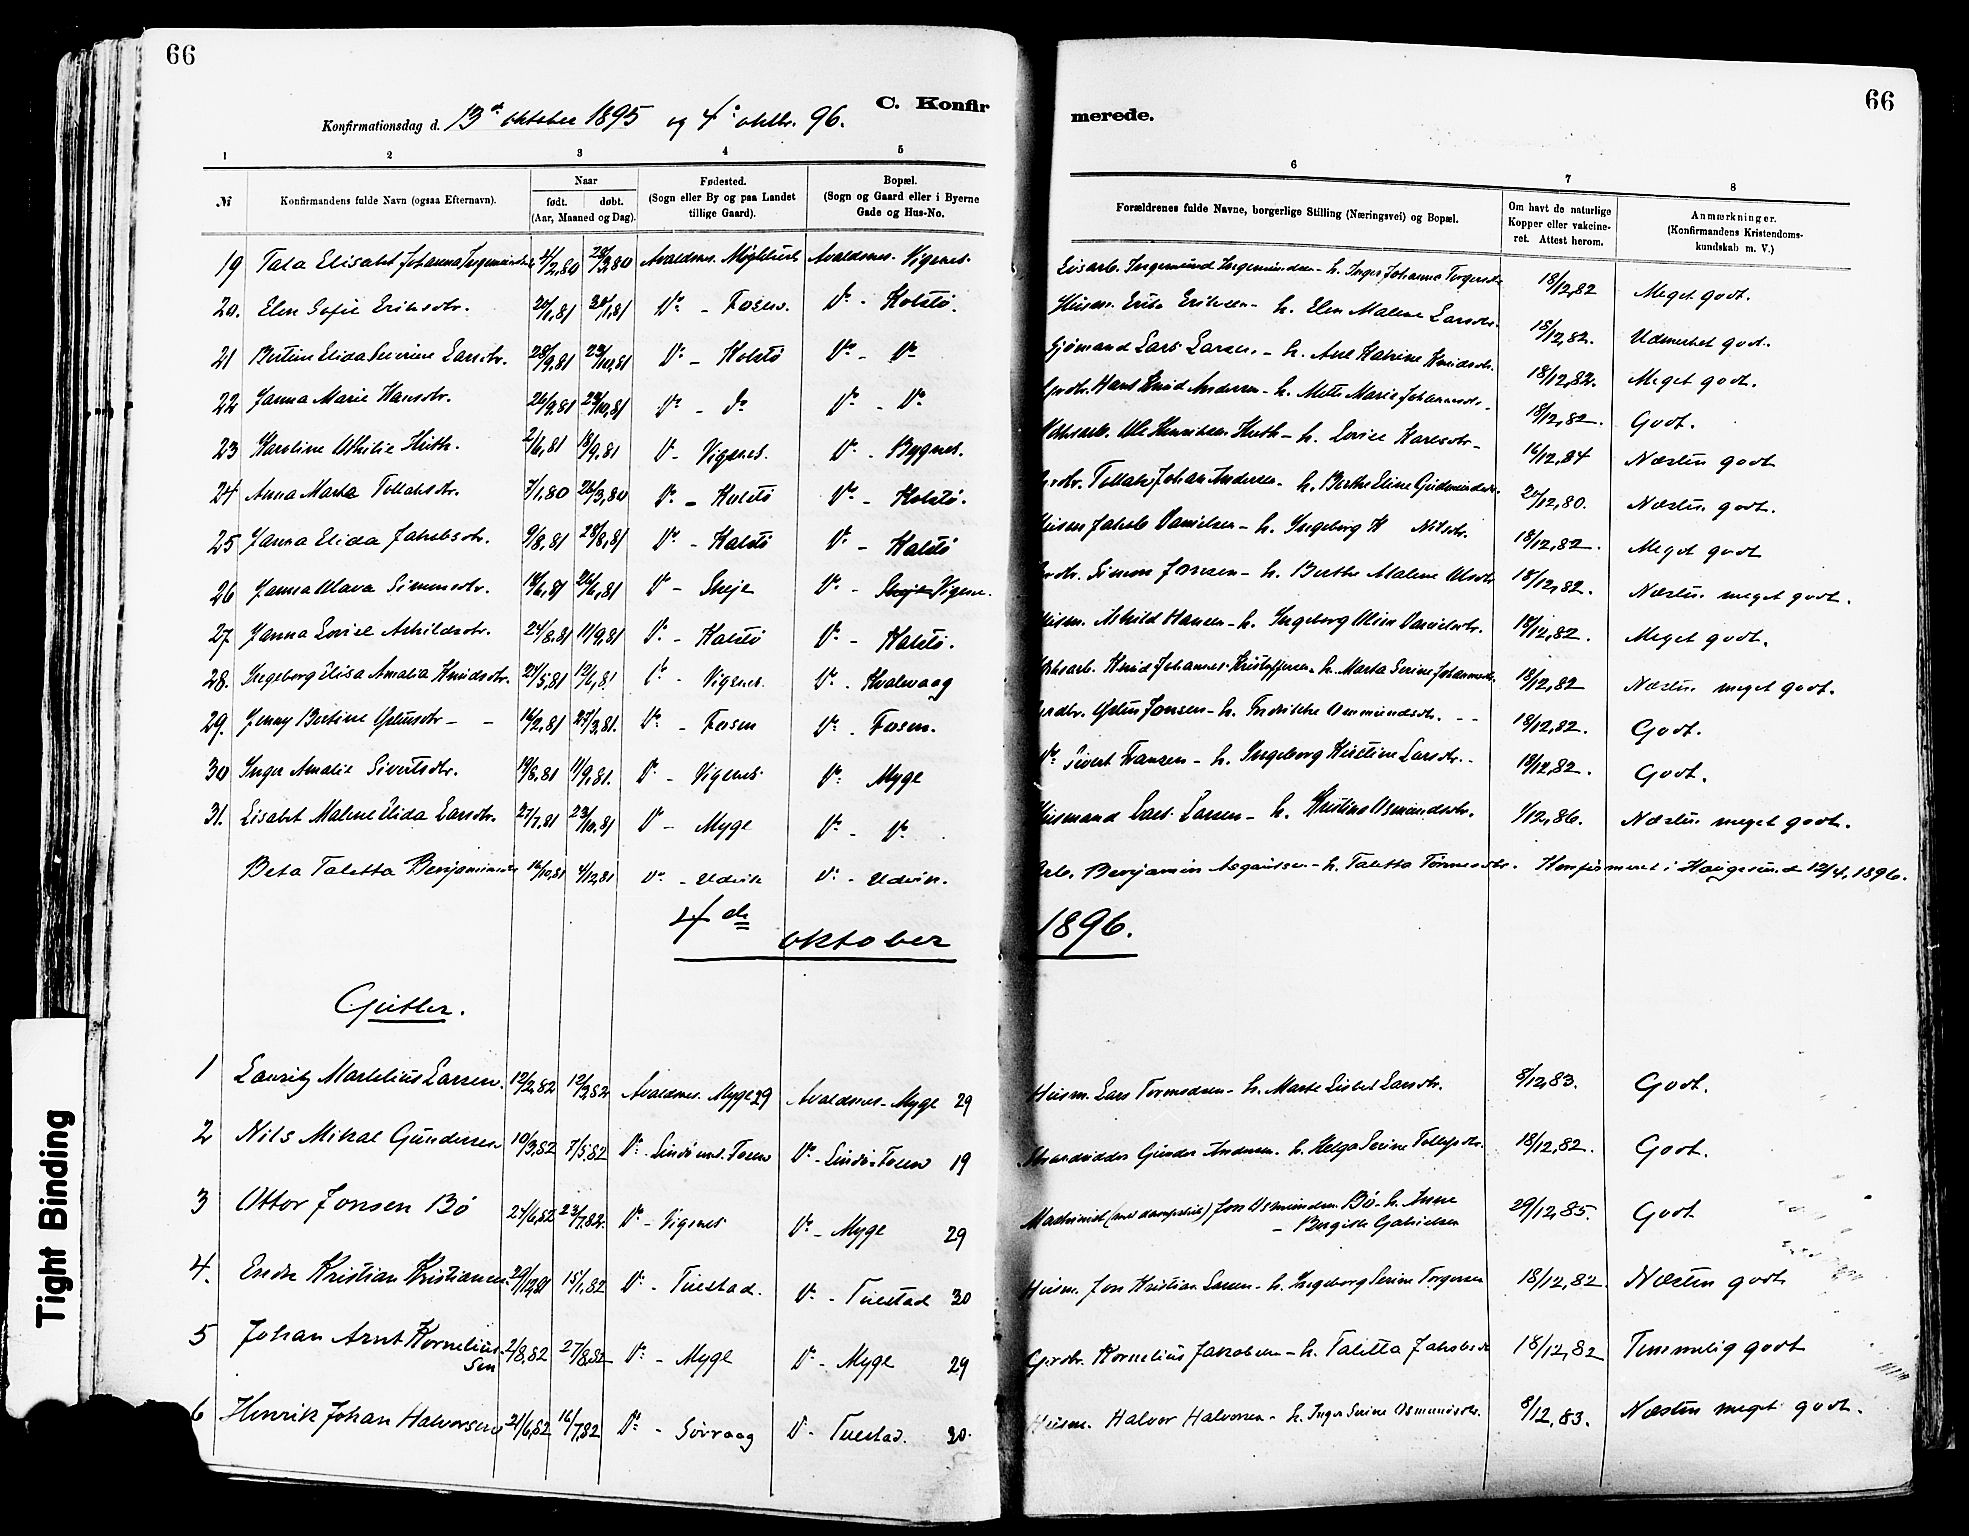 66
66
C. Konfirmerede.
Konfirmationsdag d. 13de oktober 1895 og 4de oktbr. 96.
1 2 3 4 5 6 7 8
№ Konfirmandens fulde Navn (ogsaa Efternavn). Naar født. døbt. (Aar, Maaned og Dag). Fødested. (Sogn eller By og paa Landet tillige Gaard). Bopæl. (Sogn og Gaard eller i Byerne Gade og Hus-No. Forældrenes fulde Navne, borgerlige Stilling (Næringsvei) og Bopæl. Om havt de naturlige Kopper eller vakcineret. Attest herom. Anmærkninger. (Konfirmandens Kristendomskundskab m. V.)
19 Tala Elisabet Johanna 2/2,80 28/3,80 Avaldsnes. Avaldsnes. Vigsnes. Ingemund Ingemundsen - h. Inger Johanne 18/12,82 Meget godt.
20. Elen Sofie Eriksdtr. 2/1,81 30/1,81 Do - Fosen. Do - Kolstø. Husm. Erik Eriksen - h. Elen Malene Larsdtr. 18/12,82. Udmerket godt.
21 Bertine Elida Severine Larsdtr. 28/9,81 23/10,81 Do - Kolstø Do - Do Gjømand Lars Larsen - h. Ane Katrine Knudsdtr. 18/12,82. Meget godt.
22 Janna Marie Hansdtr. 26/9,81 23/10,81 Do - do Do - Do Grdbr. Hans Knud Andersen - h. Mette Marie Johannesdtr. 18/12,82. Godt.
23 Karoline Othilie Huth. 2/6,81 18/9,81 Do - Vigsnes. Do - Bygnes. Ole Henriksen Huth - h. Lovise Karlsdtr - 16/12,84 Næsten godt
24 Anna Marta Tollaksdtr. 7/1,80 26/3,80 Do - Kolstø Do - Kolstø. Grdbr. Tollak Johan Andersen - h. Berthe Eline Gudmundsdtr. 20/12,80. Næsten godt.
25 Janna Elida Jakobsdtr. 9/8,81 28/8,81 Do - Kolstø Do - Kolstø Husm. Jakob Danielsen - h. Ingeborg K Nilsdtr. 18/12,82. Meget godt
26 Janna Olava Simonsdtr. 18/6,81 26/6,81 Do - Skeje Do - Skeje Vigsne. Grdbr. Simon Jonsen - h. Berthe Malene Olsdtr 18/12,82. Næsten meget godt.
27. Janna Lovise Askildsdtr. 24/8.81 11/9,81 Do - Kolstø Do - Kolstø. Husm. Askild Hansen - h. Ingeborg Oline Danielsdtr. 18/12,82. Meget godt.
28. Ingeborg Elisa Amalia Knudsdtr. 24/5,81 12/6,81 Do - Vigsnes. Do - Kvalevaag Knud Johannes Kristoffersen - h. Marta Serine Johannesdtr. 18/12,82 Næsten meget godt.
29. Jenny Bertine Østensdtr - - 16/2,81 27/3,81. Do - Fosen Do - Fosen. Grdbr. Østen Jonsen - h. Fredrikke Osmundsdtr. - - 18/12,82. Godt.
30 Inger Amalie Sivertsdtr. 19/8,81 11/9,81. Do - Vigsnes Do Myge Do Sivert Hansen - h. Ingeborg Kristine Larsdtr. - 18/12,82. Godt.
31. Lisabet Malene Elida Larsdtr. 27/7,81 23/10,81 Do - Myge Do - Do Husmand Lars Larsen - h. Kristine Osmundsdtr. 1/12,86. Næsten meget godt.
Beta Taletta Benjaminsdtr 16/10,81 4/12,81 Do - Udvik Do - Udvik. Arb. Benjamin - h. Taletta Tormodsdtr. Konfirmeret i Haugesund 12/4,1896.
4de oktober 1896.
Gutter.
1 Lauritz Martelius Larsen. 12/2,82 12/3,82 Avaldsnes. Myge 29 Avaldsnes - Myge 29 Husm. Lars Tormodsen - h. Marte Lisbet Larsdtr. 8/12,83. Godt.
2 Nils Mikal Gundersen 10/3,82 7/5.82 Do - Fosen Do - Fosen 19 Gunder Andersen - h. Helga Serine 18/12,82. Godt.
3 Ottor Jonsen Bø 24/6,82 23/7,82 Do - Vigsnes Do - Myge 29 Maskinist Jon Osmundsen Bø - h. Anne - Bergitte Gabrielsen 29/12,85. Godt
4. Endre Kristian Kristiansen 29/12,81 15/1,82 Do - Tuestad. Do - Tuestad 30 Husm. Jon Kristian Larsen - h. Ingeborg Serine Torgersen 18/12,82 Næsten godt
5 Johan Arnt Korneliussen 2/8,82 27/8,82 Do - Myge Do - Myge 29 Grdbr. Kornelius Jakobsen - h. Taletta Jakobsdtr 18/12,82 Temmelig godt
6 Henrik Johan Halvorsen 21/6,82 16/7,82 Do - Sørvaag Do - Tuestad. 30. Husm. Halvor Halvorsen - h. Inger Serine Osmundsdtr. 8/12,83. Næsten meget godt.
Tight Binding